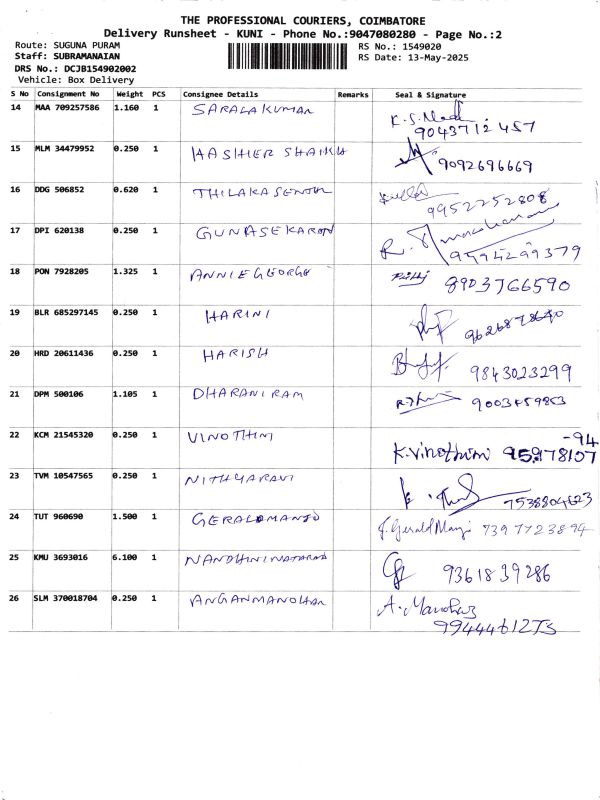 THE PROFESSIONAL COURIERS, COIMBATORE
Delivery Runsheet - KUNI - Phone No.:9047080280 - Page No.:2
Route: SUGUNA PURAM
RS No.: 1549020
Staff: SUBRAMANAIAN
RS Date: 13-May-2025
DRS No.: DCJB154902002
Vehicle: Box Delivery
S No Consignment No Weight PCS Consignee Details Remarks Seal & Signature
14 MAA 709257586 1.160 1 SARALAKUMAR
9043712457
15 MLM 34479952 0.250 1 HASHIER SHAIKH 9092696669
16 DDG 506852 0.620 1 THILAKASENTHIL 9952252808
17 DPI 620138 0.250 1 GUNASEKARAN
9994299379
18 PON 7928205 1.325 1 ANNIE GEORGE 8903766590
19 BLR 685297145 0.250 1 HARINI
20 HRD 20611436 0.250 1 HARISH 9843023299
21 DPM 500106 1.105 1 DHARANIRAM 9003459803
22 KCM 21545320 0.250 1 VINOTHINI K.Vinothini 95978107
-94
23 TVM 10547565 0.250 1 NITHYARAVI 7538804623
24 TUT 960690 1.500 1 GERALDMANJO J.Gerald Manj 7397723894
25 KMU 3693016 6.100 1 NANDHININATARAJ 9361839286
26 SLM 370018704 0.250 1 ANGANMANOHAR A. Manohar
9944461273